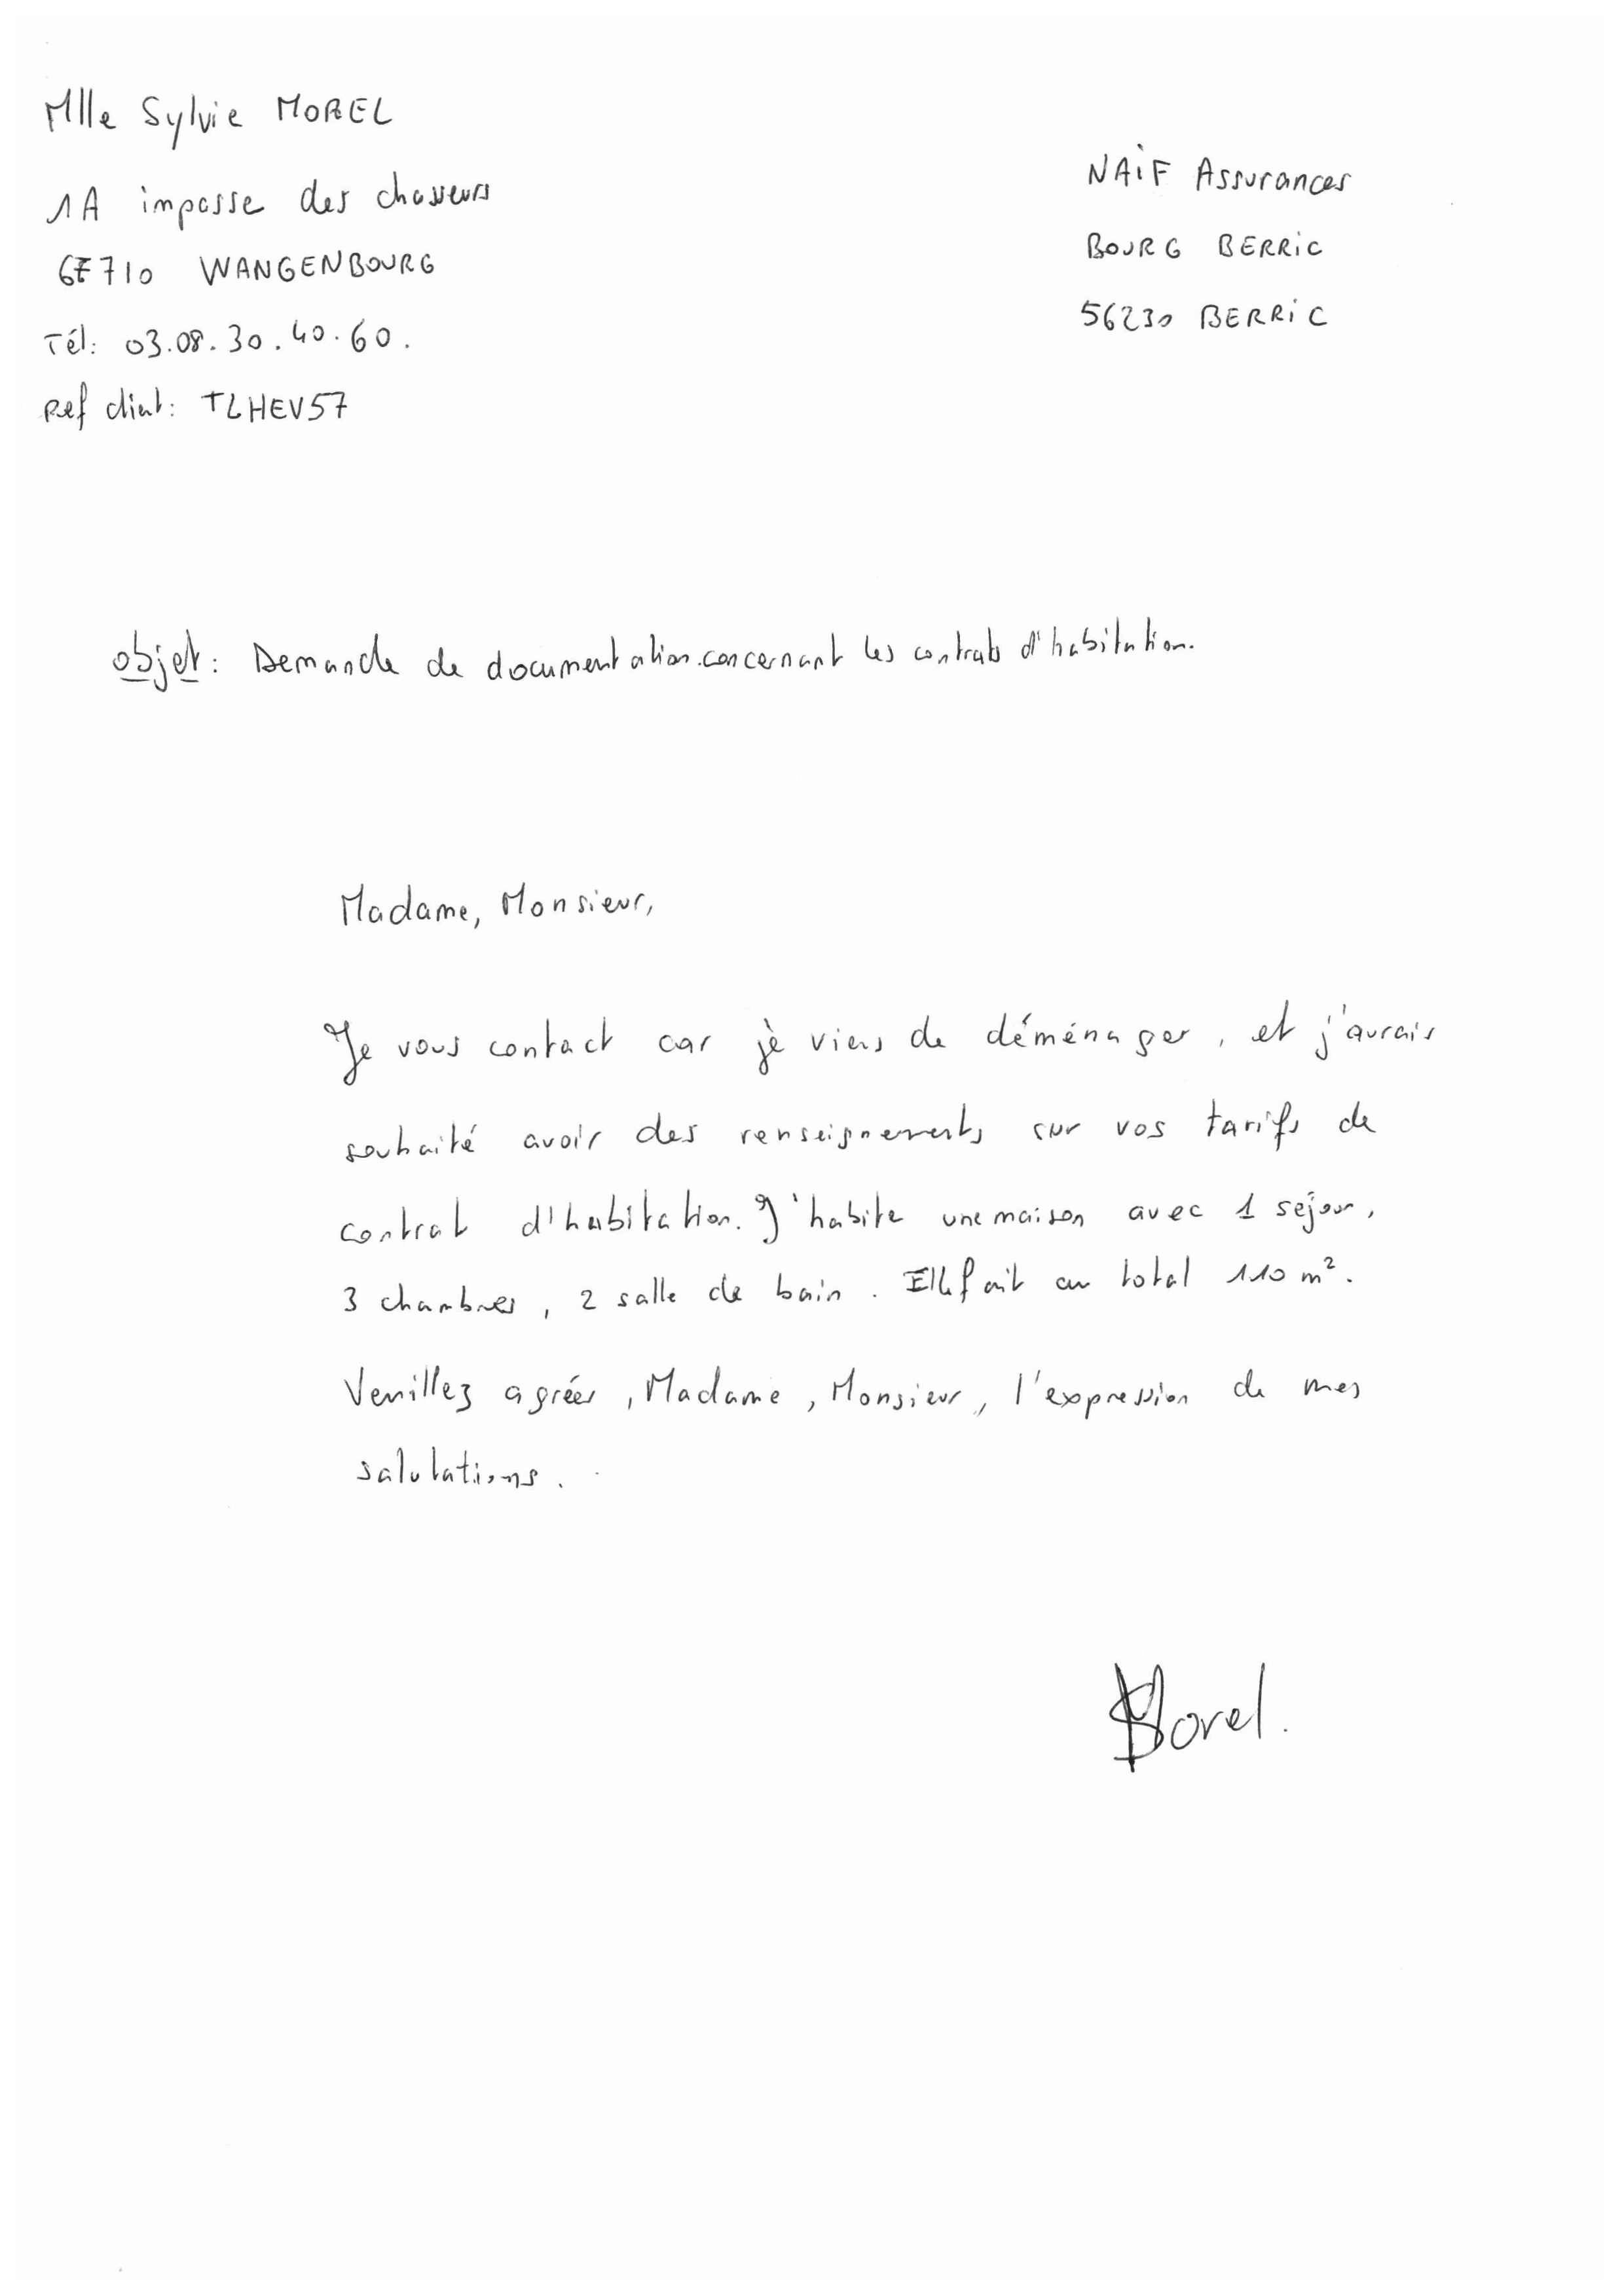 Mlle Sylvie MOREL
1A impasse des chasseurs
67710 WANGENBOURG
Tél: 03.08.30.40.60.
Ref client: TLHEV57
NAiF Assurances
BOURG BERRiC
56230 BERRiC
objet: Demande de documentation concernant les contrats d'habitation.
Madame, Monsieur,
Je vous contact car je viens de déménager, et j'aurais
souhaité avoir des renseignements sur vos tarifs de
contrat d'habitation. J'habite une maison avec 1 séjour,
3 chambres, 2 salle de bain. Elle fait au total 110 m².
Veuillez agréer, Madame, Monsieur, l'expression de mes
salutations.
SMorel.